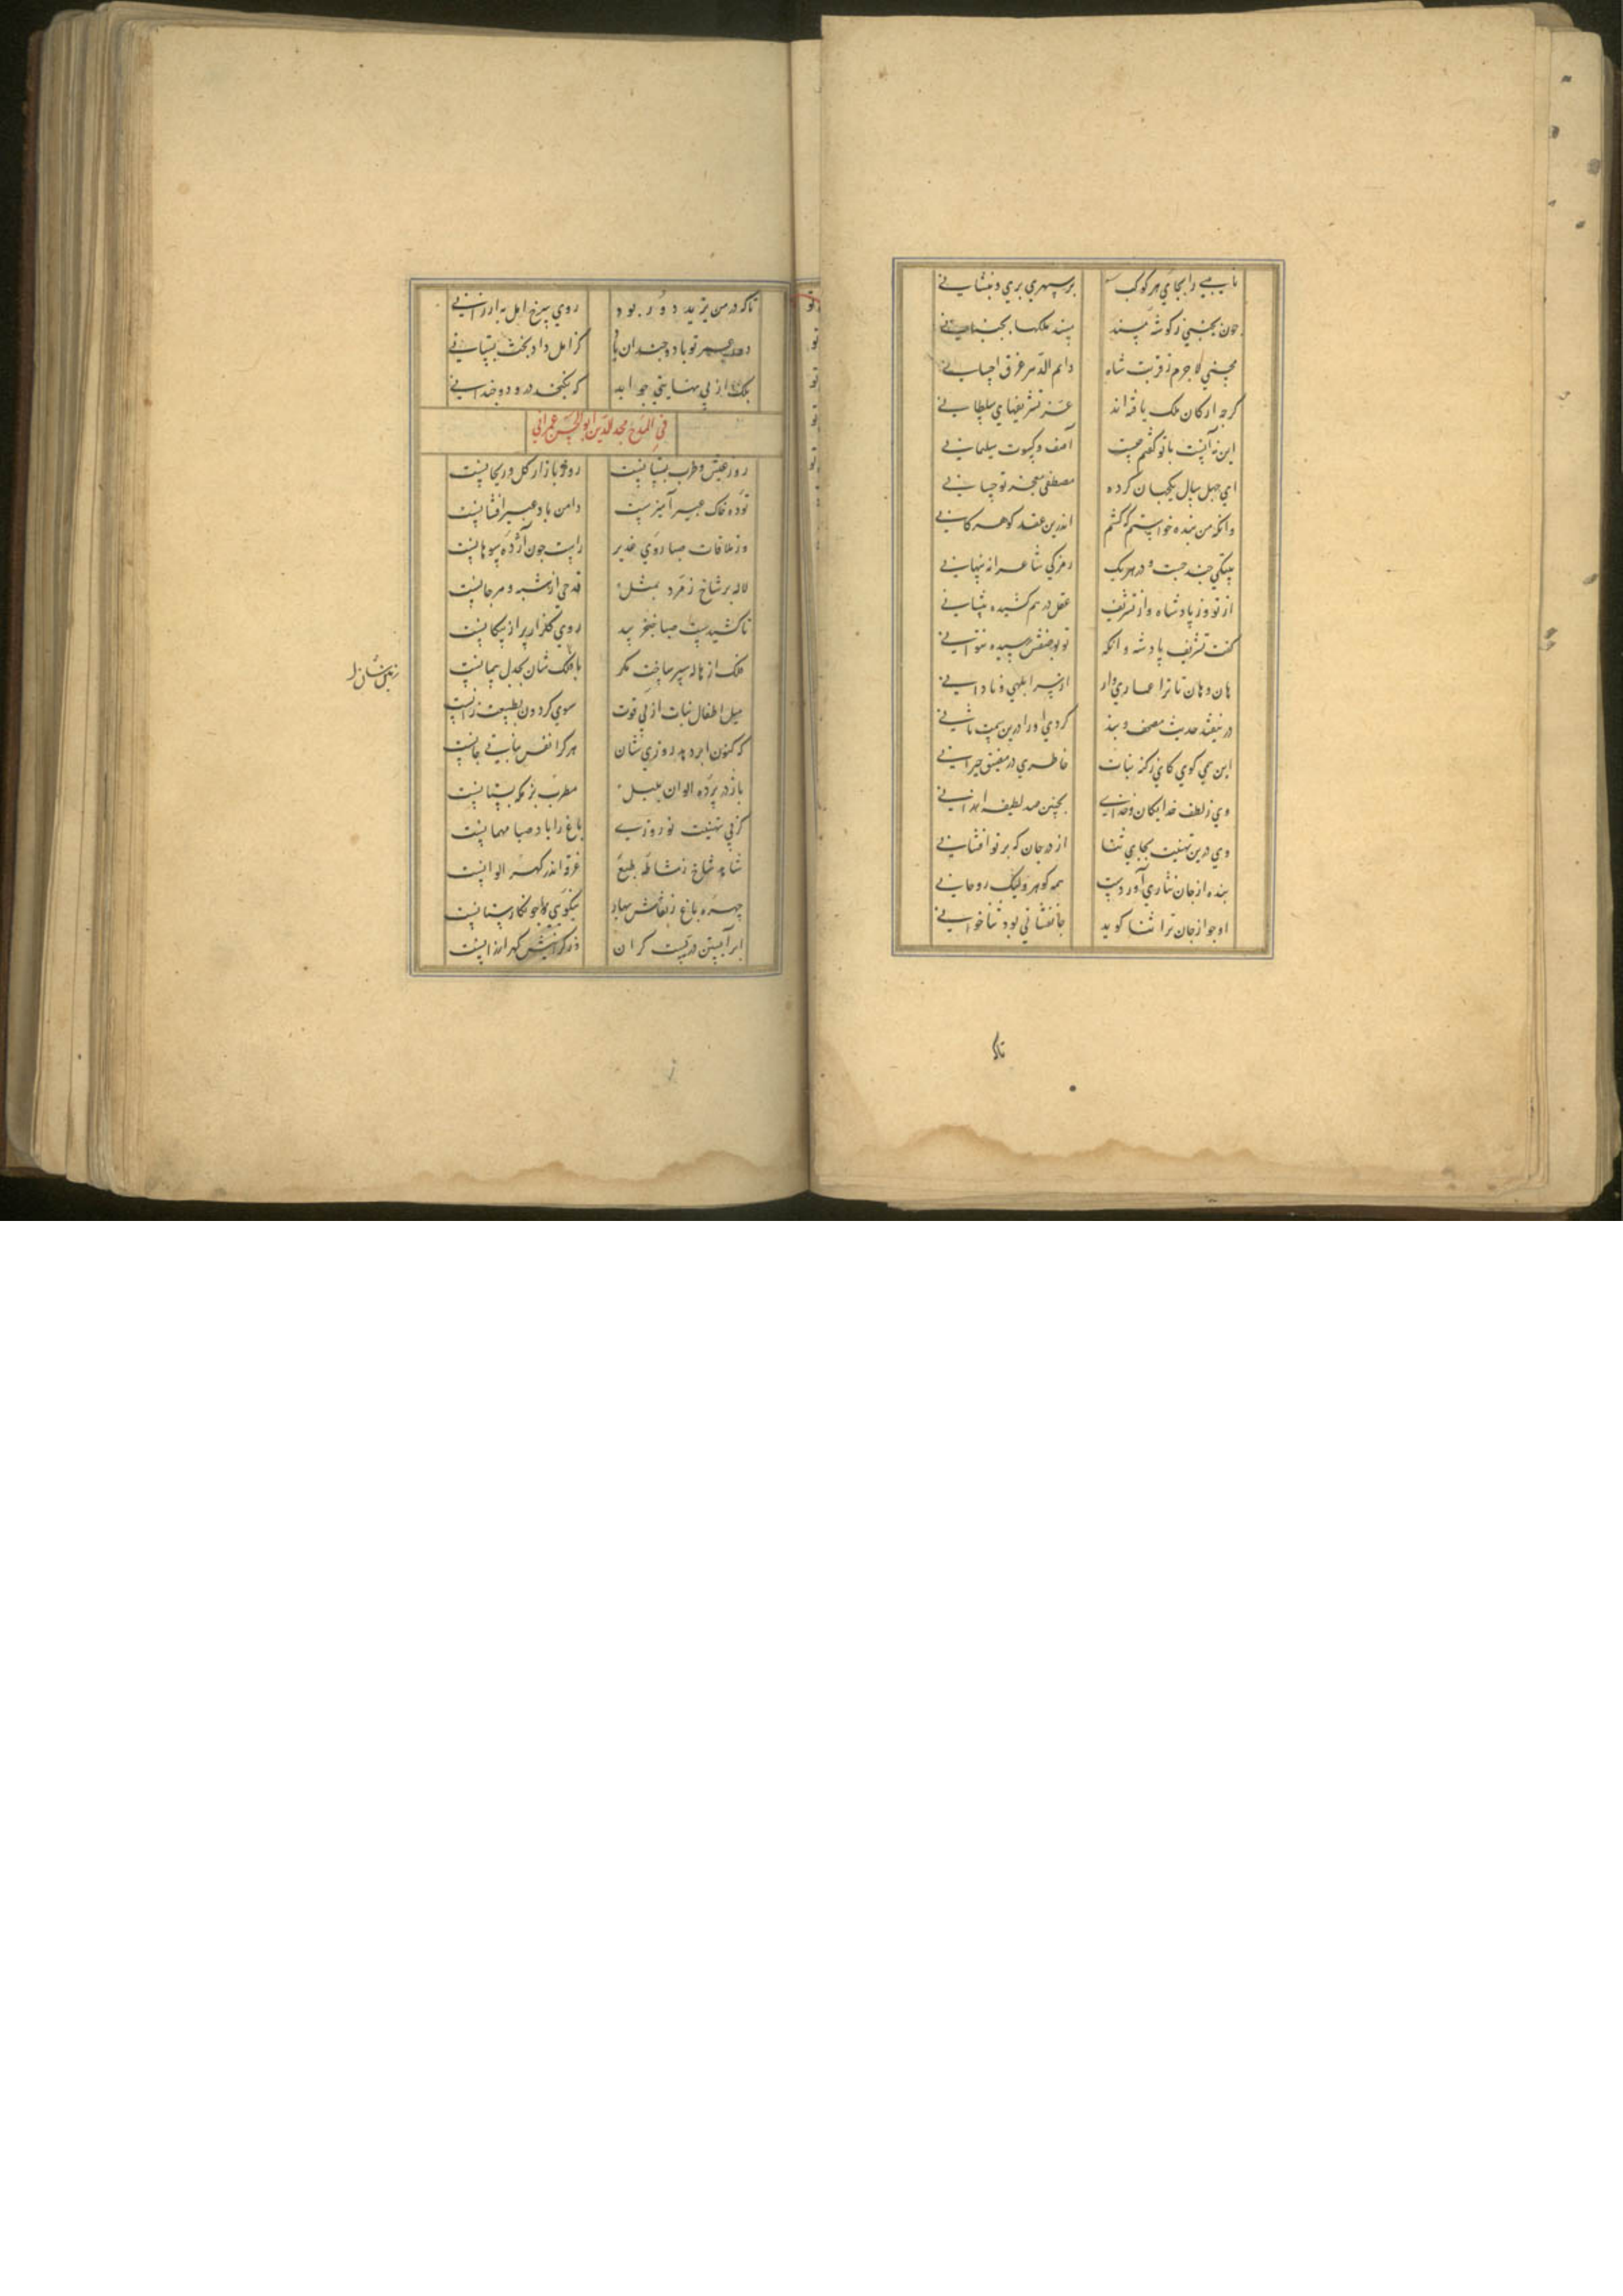 نایبی را بجای هر کوکب بر سپهری بری و بنشانی
چون بجنبی ز کوشه مسند مسند ملکها بجنبانی
مجنبی لاجرم ز قربت شاه دایم الدهر غرق احسانی
کرچه ارکان ملک یافته‌اند عز تشریفهای سلطانی
این نه آنست با تو کفتم چیست آصف و کسوت سلیمانی
ای چهل سال یکجهان کرده مصطفی معجز تو حسانی
وانکه من بنده خواستم که کشم اندرین عقد کوهر کانی
بیتکی چند چست و در هر یک رمزکی شاعرانه پنهانی
از تو وز پادشاه وز تشریف عقل در هم کشیده پیشانی
کفت تشریف پادشه وانکه تو بوصفش رسیده نتوانی
هان و هان تا ترا عماری‌وار از سر ابلهی و نادانی
در نیفتد حدیث مصحف و بند کردی او را درین سمت ثانی
این همی کوی کای ز کنه ثنات خاطری در مضیق حیرانی
وی ز لطف خدایکان و خدای بچنین صد لطیفه ارزانی
وی درین تهنیت بجای نثار از در جان که بر تو افشانی
بنده از جان نثاری آوردست همه کوهر ولیک روحانی
او چو از جان ترا ثنا کوید جانفشانی بود ثنا خوانی
تاکه
تاکه در من یزید دور بود روی نرخ امل به ارزانی
دور عمر تو باد و چندان باد کز امل داد بخت بستانی
بلک از بی نهایتی جو ابد که نکنجد درو دوچندانی
فی المدح مجد الدین ابو الحسن عمرانی
روز عیش و طرب بستانست روز بازار کل و ریحانست
توده خاک عبیر آمیزست دامن باد عبیر افشانست
وز ملاقات صبا روی غدیر راست چون آژده سوهانست
لاله بر شاخ زمرد بمثل قدحی از شبه و مرجانست
تا کشیدست صبا خنجر بید روی کلزار پر از پیکانست
فلک از هاله سپر ساخت مکر با فلک شان بجدل پیمانست
میل اطفال نبات از پی قوت سوی کردون بطبیعت زانست
که کنون ابر دهد روزی شان هر کرا نفس نباتی جانست
باز در پرده الوان بلبل مطرب بزمکه بستانست
کز پی تهنیت نوروزی باغ را باد صبا مهمانست
شاهد شاخ ز مشاطه طبع غرقه اندر کهر الوانست
چهره باغ ز نقاش بهار بنکویی چو نکارستانست
ابر آبستن دریست کران وز کرانیش کهر ارزانست